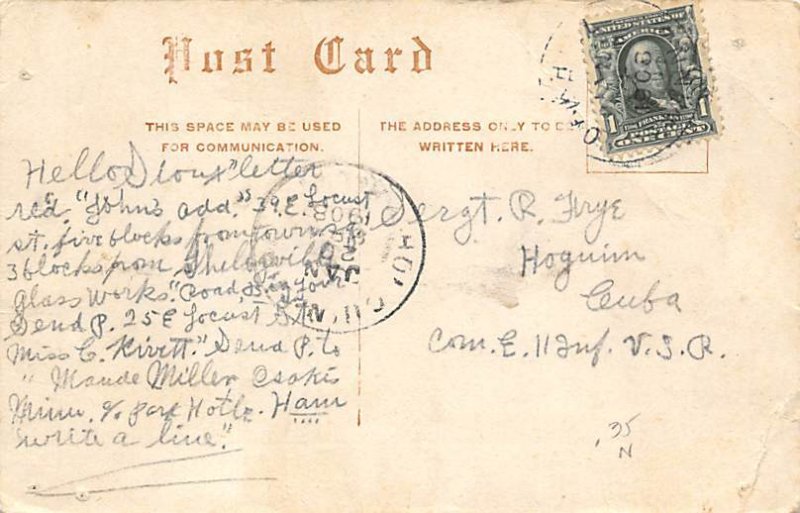 Post Card
THIS SPACE MAY BE USED
FOR COMMUNICATION.
THE ADDRESS ONLY TO BE
WRITTEN HERE.
UNITED STATES OF
AMERICA
FRANKLIN
POSTAGE
1 ONE CENT 1
1908
Hello, Sioux "letter
rec'd. "John's add." 39 E. Locust
st. five blocks from town &
3 blocks from Shelbyville
Glass Works."
Send P. 25 E Locust St.
Miss C. Rivett." Send P. to
" Maude Miller, Osakis
Minn. c/o Park Hotle. Ham
"write a line."
Sergt. R. Frye
Hoguinn
Cuba
Com. E. 11 Inf. U.S.A.
35
N